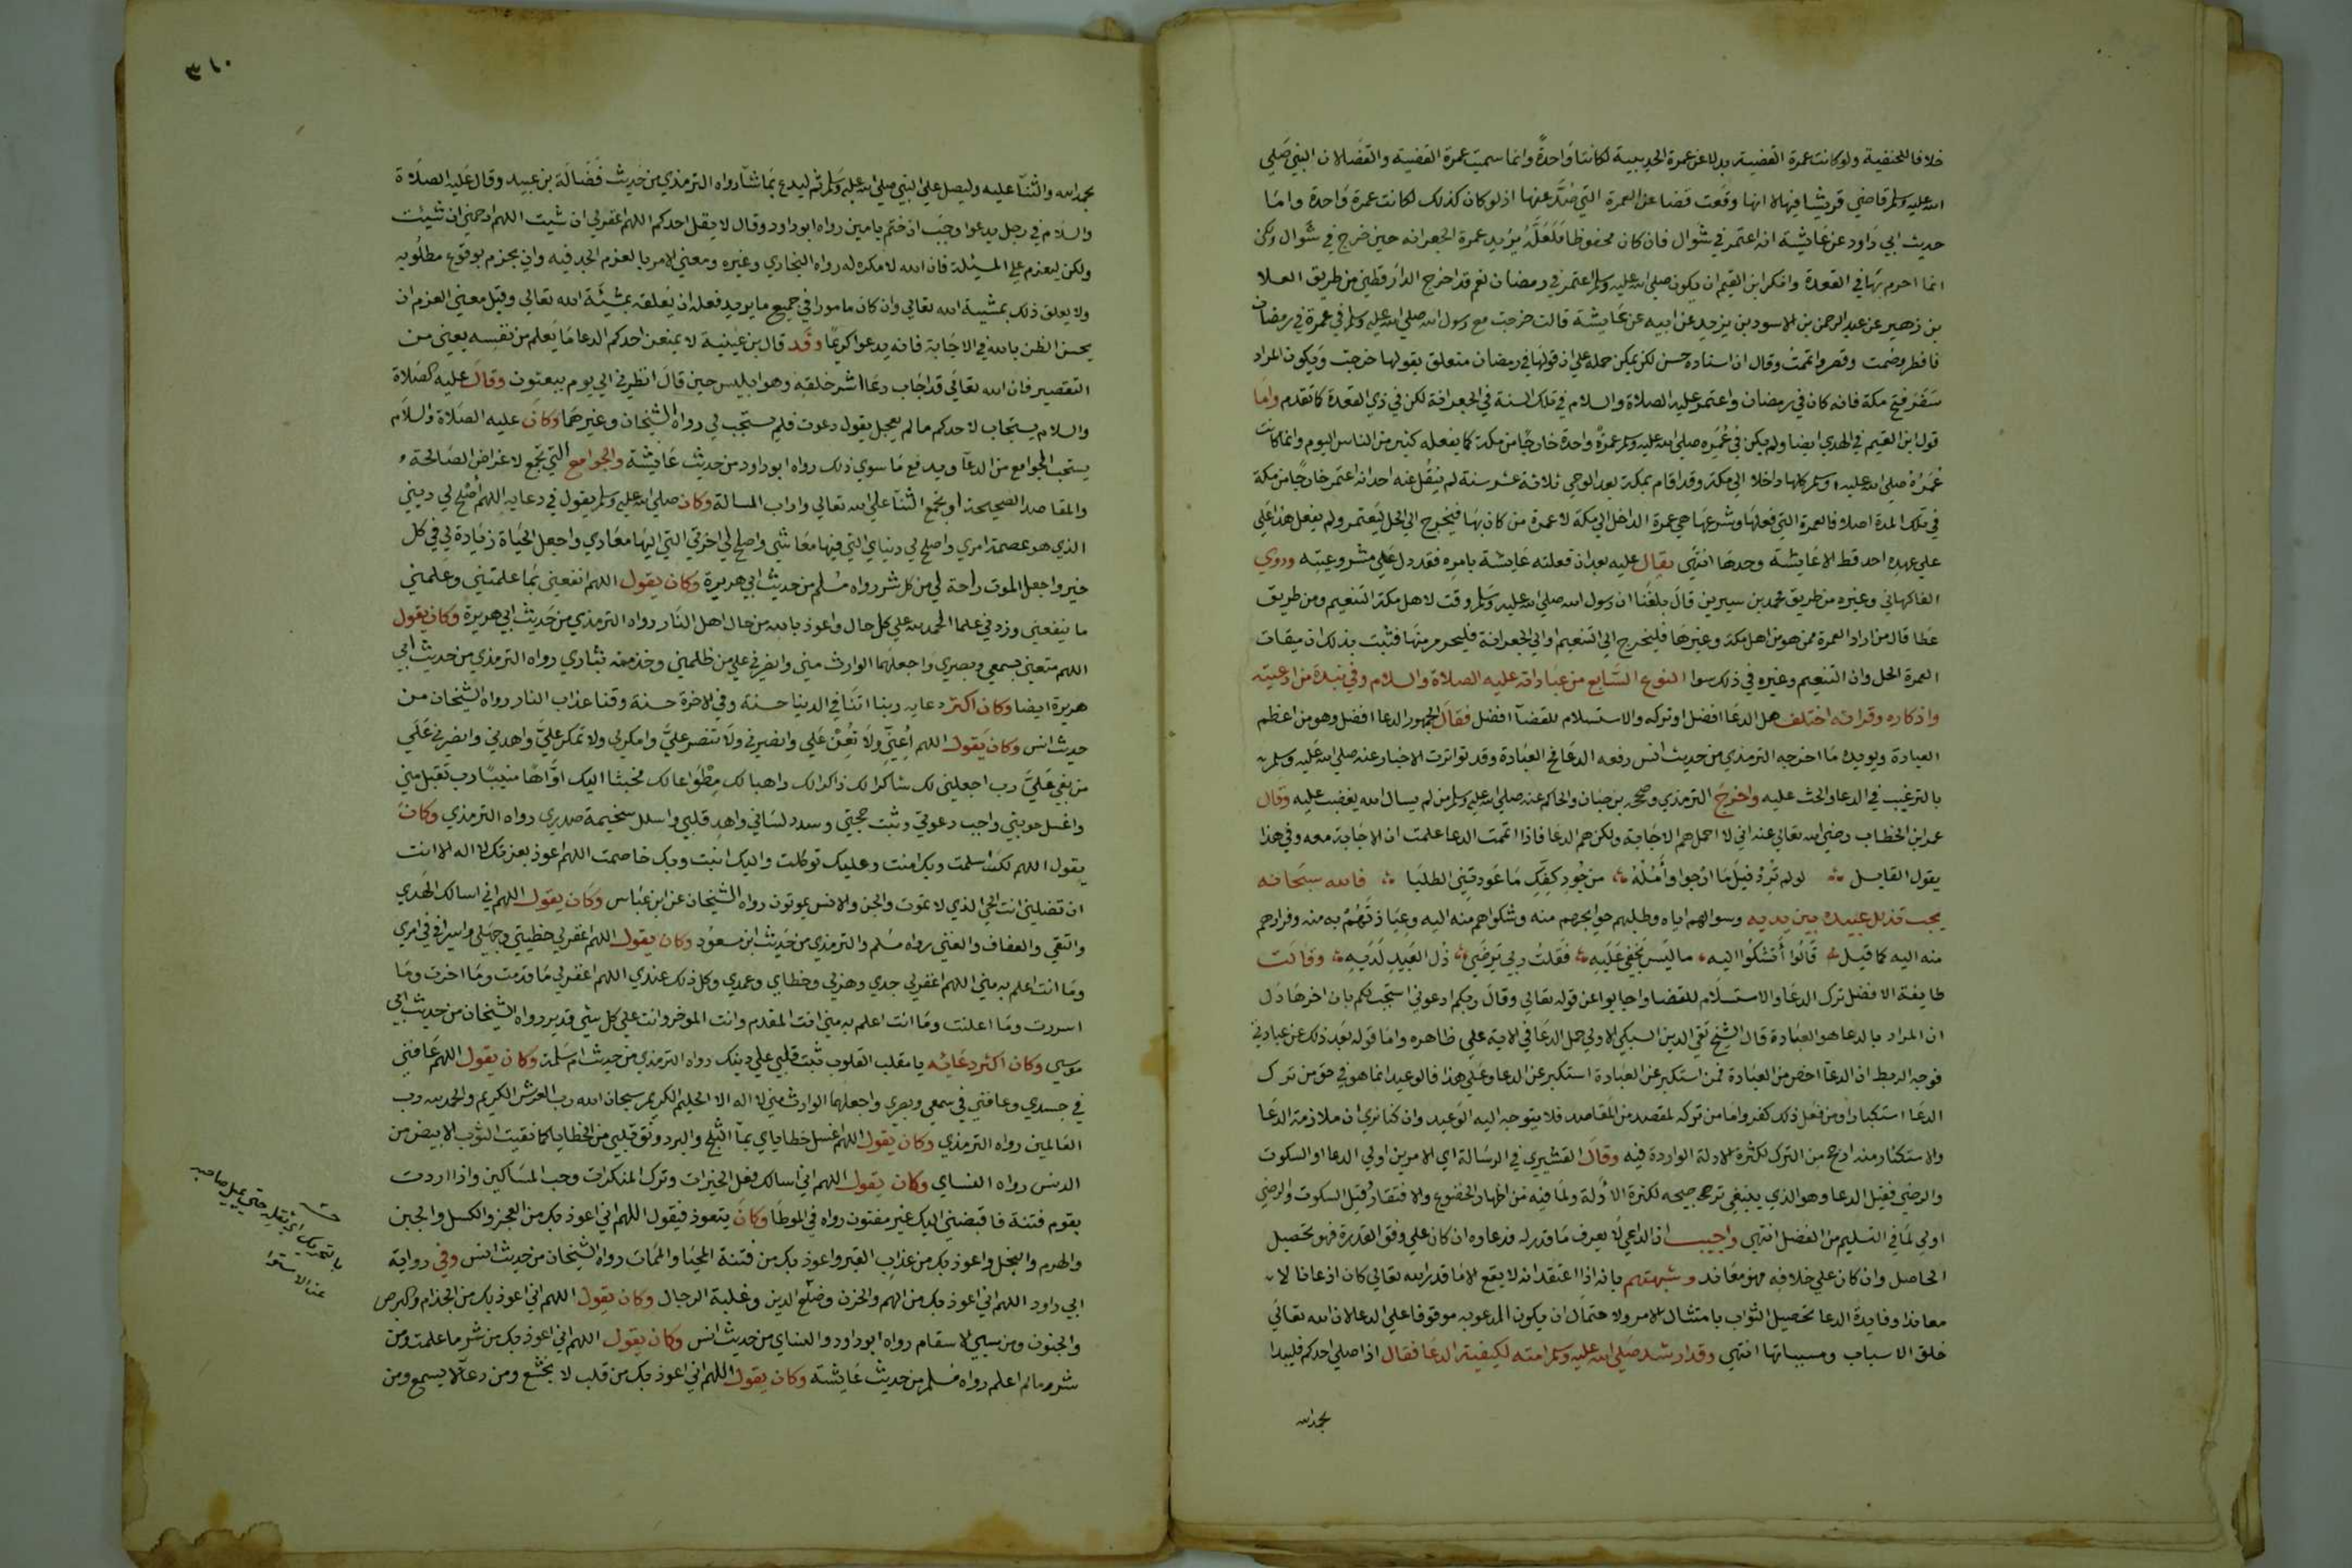 خلافا للحنفية ولو كانت عمرة القضية بدلا عن عمرة الحديبية لكانتا واحدة وانما سميت عمرة القضية والقضا لان النبي صلي
الله عليه وسلم قاضي قريشا فيها لا انها وقعت قضا عن العمرة التي صُدَّ عنها اذ لو كان كذلك لكانت عمرة واحدة واما
حديث ابي داود عن عايشة انه اعتمر في شوال فان كان محفوظا فلعله يريد عمرة الجعرانه حين خرج في شوال ولكن
انما احرم بها في القعدة وانكر ابن القيم ان يكون صلي الله عليه وسلم اعتمر في رمضان نعم قد اخرج الدارقطني من طريق العلا
بن زهير عن عبد الرحمن بن الاسود بن يزيد عن ابيه عن عايشة قالت خرجت مع رسول الله صلي الله عليه وسلم في عمرة في رمضان
فافطر وصمت وقصر واتممت وقال ان اسناده حسن لكن يمكن حمله علي ان قولها في رمضان متعلق بقولها خرجت ويكون المراد
سَفَرَ فتح مكة فانه كان في رمضان واعتمر عليه الصلاة والسلام في تلك السنة في الجعرانة لكن في ذي القعدة كما تقدم واما
قول ابن القيم في الهدي ايضا ولم يكن في عُمَره صلي الله عليه وسلم عمرةٌ واحدة خارجًا من مكة كما يفعله كثير من الناس اليوم وانما كانت
عُمَرُهُ صلي الله عليه وسلم كلها داخلا الي مكة وقد اقام بمكة بعد الوحي ثلاثة عشر سنة لم ينقل عنه احد انه اعتمر خارجًا من مكة
في تلك المدة اصلا فالعمرة التي فعلها وشرعها هي عمرة الداخل الي مكة لا عمرة من كان بها فيخرج الي الحل ليعتمر ولم يفعل هذا علي
علي عهده احد قط الا عايشة وحدها انتهي يقال عليه بعد ان فعلته عايشة بامره فقد دل علي مشروعيته وروي
الفاكهاني وغيره من طريق محمد بن سيرين قال بلغنا ان رسول الله صلي الله عليه وسلم وقت لاهل مكة التنعيم ومن طريق
عطا قال من اراد العمرة ممن هو من اهل مكة وغيرها فليخرج الي التنعيم او الي الجعرانة فليحرم منها فثبت بذلك ان ميقات
العمرة الحل وان التنعيم وغيره في ذلك سوا النوع السابع من عباداته عليه الصلاة والسلام وفي نبذة من ادعيته
واذكاره وقراته اختلف هل الدعا افضل او تركه والاستسلام للقضا افضل فقال الجمهور الدعا افضل وهو من اعظم
العبادة ويويده ما اخرجه الترمذي من حديث انس رفعه الدعا مخ العبادة وقد تواترت الاخبار عنه صلي الله عليه وسلم
بالترغيب في الدعا والحث عليه واخرج الترمذي وصححه بن حبان والحاكم عنه صلي الله عليه وسلم من لم يسال الله يغضب عليه وقال
عمر ابن الخطاب رضي الله تعالي عنه اني لا احمل هم الاجابة ولكن هم الدعا فاذا اتممت الدعا علمت ان الاجابة معه وفي هذا
يقول القايل لو لم تُرِدْ نيلَ ما ارجوا وأمُلُهُ من جُودِ كفِّكِ ما عودتني الطلبا فالله سبحانه
يحب تذلل عبيده بين يديه وسوالهم اياه وطلبهم حوايجهم منه وشكواهم منه اليه وعياذتهم به منه وفرارهم
منه اليه كما قيل قالوا أتشكوا اليه ما ليس يخفي عليه فقلت ربي يرضي ذل العبيد لديه وقالت
طايفة الافضل ترك الدعا والاستسلام للقضا واجابوا عن قوله تعالي وقال ربكم ادعوني استجب لكم بان اخرها دل
ان المراد بالدعا هو العبادة قال الشيخ تقي الدين السبكي الاولي حمل الدعا في الاية علي ظاهره واما قوله بعد ذلك عن عبادتي
فوجه الربط ان الدعا اخص من العبادة فمن استكبر عن العبادة استكبر عن الدعا وعلي هذا فالوعيد انما هو في حق من ترك
الدعا استكبارا ومن فعل ذلك كفر واما من تركه لمقصد من المقاصد فلا يتوجه اليه الوعيد وان كنا نري ان ملازمة الدعا
والاستكثار منه ارجح من الترك لكثرة الادلة الواردة فيه وقال القشيري في الرسالة اي الامرين اولي الدعا او السكوت
والرضي فقيل الدعا وهو الذي ينبغي ترجيحه لكثرة الادلة ولما فيه من اظهار الخضوع والافتقار وقيل السكوت والرضي
اولي لما في التسليم من الفضل انتهي واجيب ان الداعي لا يعرف ما قدر له فدعاوه ان كان علي وفق القدرة فهو تحصيل
الحاصل وان كان علي خلافه فهو معاند وشبهتهم بانه اذا اعتقد انه لا يقع الا ما قدر الله تعالي كان اذعانا لا
معاندا وفايدة الدعا تحصيل الثواب بامتثال الامر ولاحتمال ان يكون المدعو به موقوفا علي الدعا لان الله تعالي
خلق الاسباب ومسبباتها انتهي وقد ارشد صلي الله عليه وسلم امته لكيفية الدعا فقال اذا صلي احدكم فليبدا
بحمد الله
٣١٠
بحمد الله والثنا عليه وليصل علي النبي صلي الله عليه وسلم ثم ليدع بما شا رواه الترمذي من حديث فضالة بن عبيد وقال عليه الصلاة
والسلام في رجل يدعوا وجب ان ختم بامين رواه ابو داود وقال لا يقل احدكم اللهم اغفر لي ان شيت اللهم ارحمني ان شئت
ولكن ليعزم علي المسئلة فان الله لا مكره له رواه البخاري وغيره ومعني الامر بالعزم الجد فيه وان يجزم بوقوع مطلوبه
ولا يعلق ذلك بمشيية الله تعالي وان كان مامورا في جميع ما يريد فعله ان يعلقه بمشيئة الله تعالي وقيل معني العزم ان
يحسن الظن بالله في الاجابة فانه يدعوا كريمًا وقد قال بن عيينية لا يمنعن احدكم الدعا ما يعلم من نفسه يعني من
التقصير فان الله تعالي قد اجاب دعا اشر خلقه وهو ابليس حين قال انظرني الي يوم يبعثون وقال عليه الصلاة
والسلام يستجاب لاحدكم ما لم يعجل يقول دعوت فلم يستجب لي رواه الشيخان وغيرهما وكان عليه الصلاة والسلام
يستحب الجوامع من الدعا ويدع ما سوي ذلك رواه ابو داود من حديث عايشة والجوامع التي تجمع لاغراض الصالحة و
والمقاصد الصحيحة او تجمع الثنا علي الله تعالي واداب المسالة وكان صلي الله عليه وسلم يقول في دعايه اللهم اصلح لي ديني
الذي هو عصمة امري واصلح لي دنياي التي فيها معاشي واصلح لي اخرتي التي اليها معادي واجعل الحياة زيادة لي في كل
خير واجعل الموت راحة لي من كل شر رواه مسلم من حديث ابي هريرة وكان يقول اللهم انفعني بما علمتني وعلمني
ما ينفعني وزدني علما الحمد لله علي كل حال واعوذ بالله من حال اهل النار رواه الترمذي من حديث ابي هريرة وكان يقول
اللهم متعني بسمعي وبصري واجعلهما الوارث مني وانصرني علي من ظلمني وخذ منه بثاري رواه الترمذي من حديث ابي
هريرة ايضا وكان اكثر دعايه ربنا اتنا في الدنيا حسنة وفي الاخرة حسنة وقنا عذاب النار رواه الشيخان من
حديث انس وكان يقول اللهم أعِنّي ولا تُعِنْ علي وانصرني ولا تنصر عليَّ وامكر لي ولا تمكر عليَّ واهدني وانصرني علي
من بغي عليَّ رب اجعلني لك شاكرا لك ذاكرا لك راهبا لك مِطْوَاعا لك مخبتا اليك اوَّاهًا منيبًا رب تقبل مني
واغسل حوبتي واجب دعوتي وثبت حجتي وسدد لساني واهد قلبي واسلل سخيمة صدري رواه الترمذي وكان
يقول اللهم لك اسلمت وبك امنت وعليك توكلت واليك انبت وبك خاصمت اللهم اعوذ بعزتك لا اله الا انت
ان تضلني انت الحي الذي لا تموت والجن والانس يموتون رواه الشيخان عن ابن عباس وكان يقول اللهم اني اسالك الهدي
والتقي والعفاف والغني رواه مسلم والترمذي من حديث ابن مسعود وكان يقول اللهم اغفر لي خطيتي وجهلي واسرافي في امري
وما انت اعلم به مني اللهم اغفر لي جدي وهزلي وخطاي وعمدي وكل ذلك عندي اللهم اغفر لي ما قدمت وما اخرت وما
اسررت وما اعلنت وما انت اعلم به مني انت المقدم وانت الموخر وانت علي كل شي قدير رواه الشيخان من حديث ابي
موسي وكان اكثر دعائه يا مقلب القلوب ثبت قلبي علي دينك رواه الترمذي من حديث ام سلمة وكان يقول اللهم عافني
في جسدي وعافني في سمعي وبصري واجعلهما الوارث مني لا اله الا الحليم الكريم سبحان الله رب العرش الكريم والحمد لله رب
العالمين رواه الترمذي وكان يقول اللهم اغسل خطاياي بما الثلج والبرد ونق قلبي من الخطايا كما نقيت الثوب الابيض من
الدنس رواه النساي وكان يقول اللهم اني اسالك فعل الخيرات وترك المنكرات وحب المساكين واذا اردت
بقوم فتنة فاقبضني اليك غير مفتون رواه في الموطا وكان يتعوذ فيقول اللهم اني اعوذ بك من العجز والكسل والجبن
والهرم والبخل واعوذ بك من عذاب القبر واعوذ بك من فتنة المحيا والممات رواه الشيخان من حديث انس وفي رواية
ابي داود اللهم اني اعوذ بك من الهم والحزن وضلع الدين وغلبة الرجال وكان يقول اللهم اني اعوذ بك من الجذام والبرص
والجنون ومن سيي الاسقام رواه ابو داود والنساي من حديث انس وكان يقول اللهم اني اعوذ بك من شر ما علمت ومن
شر ما لم اعلم رواه مسلم من حديث عايشة وكان يقول اللهم اني اعوذ بك من قلب لا يخشع ومن دعا لا يسمع ومن
بالتحريك اي ثقله حتي يميل صاحبه
عن الاستوا